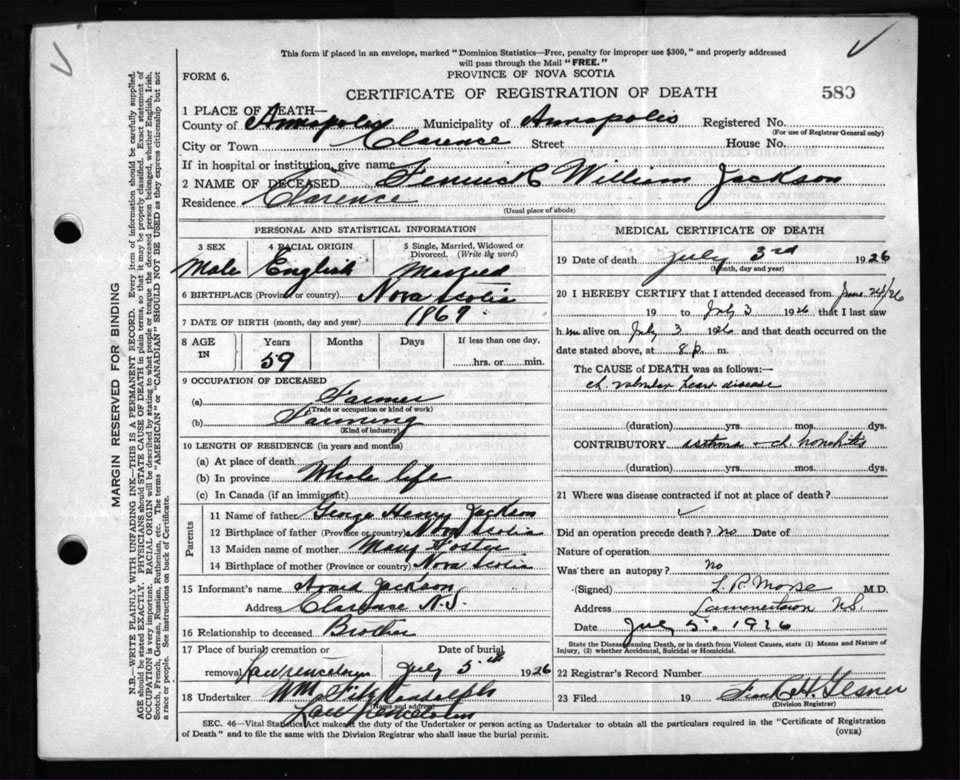 This form if placed in an envelope, marked "Dominion Statistics—Free, penalty for improper use $300," and properly addressed
will pass through the Mail "FREE."
FORM 6.
PROVINCE OF NOVA SCOTIA
CERTIFICATE OF REGISTRATION OF DEATH
580
1 PLACE OF DEATH—
County of Annapolis Municipality of Annapolis Registered No.
(For use of Registrar General only)
City or Town Clarence Street House No.
If in hospital or institution, give name
2 NAME OF DECEASED Fenwick William Jackson
Residence Clarence
(Usual place of abode)
PERSONAL AND STATISTICAL INFORMATION
3 SEX 4 RACIAL ORIGIN 5 Single, Married, Widowed or
Divorced. (Write thy word)
Male English Married
6 BIRTHPLACE (Province or country) Nova Scotia
7 DATE OF BIRTH (month, day and year) 1867
8 AGE IN Years Months Days If less than one day,
59 hrs. or min.
9 OCCUPATION OF DECEASED
(a) Farmer
(Trade or occupation or kind of work)
(b) Farming
(Kind of industry)
10 LENGTH OF RESIDENCE (in years and months)
(a) At place of death
(b) In province Whole life
(c) In Canada (if an immigrant)
Parents
11 Name of father George Henry Jackson
12 Birthplace of father (Province or country) Nova Scotia
13 Maiden name of mother Mary Foster
14 Birthplace of mother (Province or country) Nova Scotia
15 Informant's name Jackson
Address Clarence N.S.
16 Relationship to deceased Brother
17 Place of burial cremation or Date of burial
removal Lawrencetown July 5th 1926
18 Undertaker Wm FitzRandolph
(Name and address)
Lawrencetown
MEDICAL CERTIFICATE OF DEATH
19 Date of death July 3rd 1926
(Month, day and year)
20 I HEREBY CERTIFY that I attended deceased from June 24/26
19 to July 3 1926 that I last saw
h im alive on July 3 1926 and that death occurred on
date stated above, at 8 p. m.
The CAUSE of DEATH was as follows:—
ch. valvular heart disease
(duration) yrs. mos. dys.
CONTRIBUTORY asthma - ch. bronchitis
(duration) yrs. mos. dys.
21 Where was disease contracted if not at place of death?
✓
Did an operation precede death? no Date of
Nature of operation
Was there an autopsy? no
(Signed) L. R. Morse M.D.
Address Lawrencetown N.S.
Date July 5. 1926
State the Disease causing Death, or in death from Violent Causes, state (1) Means and Nature of
Injury, (2) whether Accidental, Suicidal or Homicidal.
22 Registrar's Record Number
23 Filed 19 Frank H. Gesner
(Division Registrar)
SEC. 46—Vital Statistics Act makes it the duty of the Undertaker or person acting as Undertaker to obtain all the particulars required in the "Certificate of Registration
of Death" and to file the same with the Division Registrar who shall issue the burial permit.
(OVER)
MARGIN RESERVED FOR BINDING
N.B.—WRITE PLAINLY WITH UNFADING INK—THIS IS A PERMANENT RECORD. Every item of information should be carefully supplied.
AGE should be stated EXACTLY. PHYSICIANS should STATE CAUSE OF DEATH in plain terms, so that it may be properly classified. Exact statement of
OCCUPATION is very important. RACIAL ORIGIN will be described by stating to what people or tongue the deceased person belonged, whether English, Irish,
Scotch, French, German, Russian, Ruthenian, etc. The terms "AMERICAN" or "CANADIAN" SHOULD NOT BE USED as they express citizenship but not
a race or people. See instructions on back of Certificate.